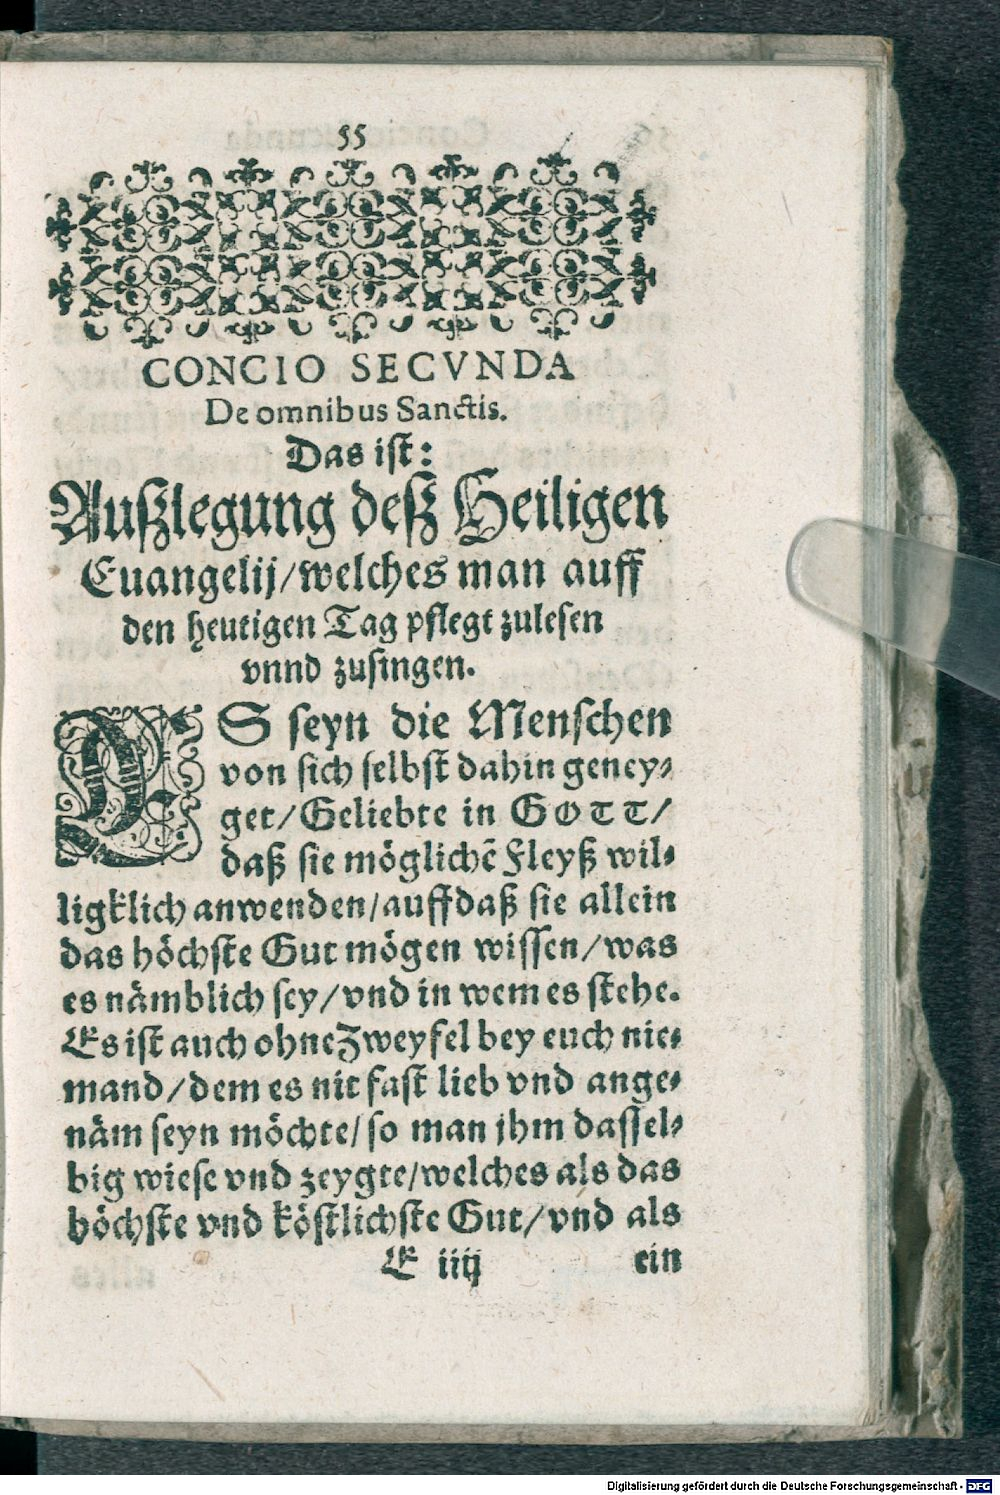 55
CONCIO SECVNDA
De omnibus Sanctis.
Das ist:
Außlegung deß Heiligen
Euangelij/welches man auff
den heutigen Tag pflegt zulesen
vnnd zusingen.
ES seyn die Menschen
von sich selbst dahin geney⸗
get/Geliebte in GOTT/
daß sie möglichẽ Fleyß wil⸗
ligklich anwenden/auffdaß sie allein
das höchste Gut mögen wissen/was
es nämblich sey/vnd in wem es stehe.
Es ist auch ohne Zweyfel bey euch nie⸗
mand/dem es nit fast lieb vnd ange⸗
näm seyn möchte/so man jhm dassel⸗
big wiese vnd zeygte/welches als das
höchste vnd köstlichste Gut/vnd als
E iiij ein
Digitalisierung gefördert durch die Deutsche Forschungsgemeinschaft - DFG